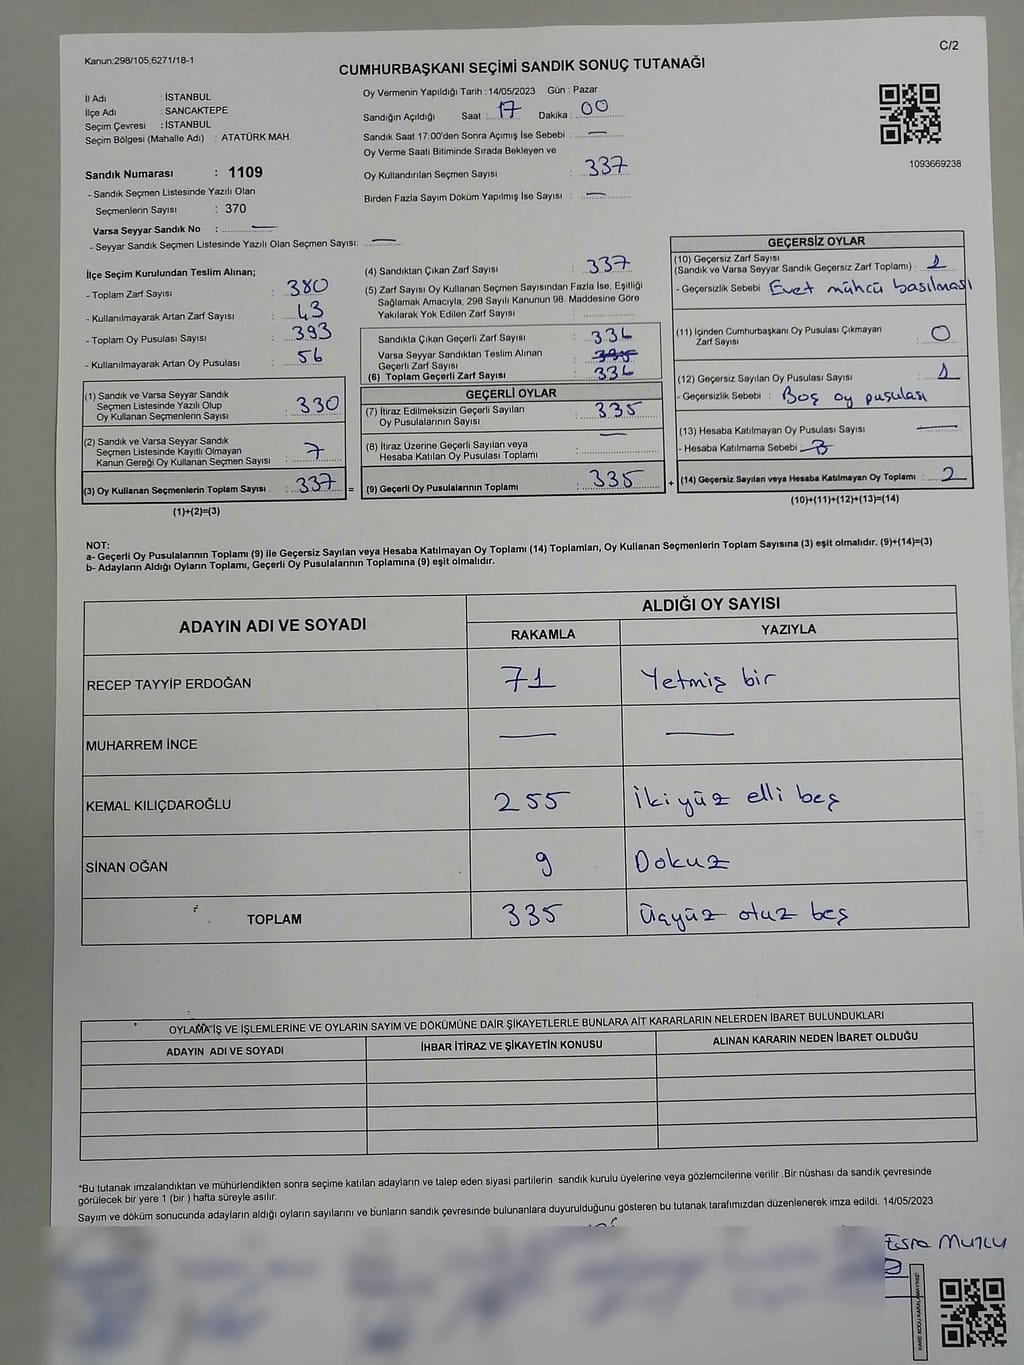 Kanun:298/105,6271/18-1
C/2
CUMHURBAŞKANI SEÇİMİ SANDIK SONUÇ TUTANAĞI
İl Adı : İSTANBUL
İlçe Adı : SANCAKTEPE
Seçim Çevresi : İSTANBUL
Seçim Bölgesi (Mahalle Adı) : ATATÜRK MAH.
Sandık Numarası : 1109
- Sandık Seçmen Listesinde Yazılı Olan
Seçmenlerin Sayısı : 370
Varsa Seyyar Sandık No : —
- Seyyar Sandık Seçmen Listesinde Yazılı Olan Seçmen Sayısı: —
Oy Vermenin Yapıldığı Tarih : 14/05/2023 Gün : Pazar
Sandığın Açıldığı Saat : 17 Dakika : 00
Sandık Saat 17:00'den Sonra Açımış İse Sebebi : —
Oy Verme Saati Bitiminde Sırada Bekleyen ve
Oy Kullandırılan Seçmen Sayısı : 337
Birden Fazla Sayım Döküm Yapılmış İse Sayısı : —
1093669238
İlçe Seçim Kurulundan Teslim Alınan;
- Toplam Zarf Sayısı : 380
- Kullanılmayarak Artan Zarf Sayısı : 43
- Toplam Oy Pusulası Sayısı : 393
- Kullanılmayarak Artan Oy Pusulası : 56
(1) Sandık ve Varsa Seyyar Sandık
Seçmen Listesinde Yazılı Olup
Oy Kullanan Seçmenlerin Sayısı : 330
(2) Sandık ve Varsa Seyyar Sandık
Seçmen Listesinde Kayıtlı Olmayan
Kanun Gereği Oy Kullanan Seçmen Sayısı : 7
(3) Oy Kullanan Seçmenlerin Toplam Sayısı : 337 =
(1)+(2)=(3)
(4) Sandıktan Çıkan Zarf Sayısı : 337
(5) Zarf Sayısı Oy Kullanan Seçmen Sayısından Fazla İse, Eşitliği
Sağlamak Amacıyla, 298 Sayılı Kanunun 98. Maddesine Göre
Yakılarak Yok Edilen Zarf Sayısı :
Sandıkta Çıkan Geçerli Zarf Sayısı : 336
Varsa Seyyar Sandıktan Teslim Alınan
Geçerli Zarf Sayısı :
(6) Toplam Geçerli Zarf Sayısı : 336
GEÇERLİ OYLAR
(7) İtiraz Edilmeksizin Geçerli Sayılan
Oy Pusulalarının Sayısı : 335
(8) İtiraz Üzerine Geçerli Sayılan veya
Hesaba Katılan Oy Pusulası Toplamı : —
(9) Geçerli Oy Pusulalarının Toplamı : 335 +
GEÇERSİZ OYLAR
(10) Geçersiz Zarf Sayısı
(Sandık ve Varsa Seyyar Sandık Geçersiz Zarf Toplamı) : 1
- Geçersizlik Sebebi Evet mühcü basılması
(11) İçinden Cumhurbaşkanı Oy Pusulası Çıkmayan
Zarf Sayısı : 0
(12) Geçersiz Sayılan Oy Pusulası Sayısı : 1
- Geçersizlik Sebebi : Boş oy pusulası
(13) Hesaba Katılmayan Oy Pusulası Sayısı —
- Hesaba Katılmama Sebebi :
(14) Geçersiz Sayılan veya Hesaba Katılmayan Oy Toplamı : 2
(10)+(11)+(12)+(13)=(14)
NOT:
a- Geçerli Oy Pusulalarının Toplamı (9) ile Geçersiz Sayılan veya Hesaba Katılmayan Oy Toplamı (14) Toplamları, Oy Kullanan Seçmenlerin Toplam Sayısına (3) eşit olmalıdır. (9)+(14)=(3)
b- Adayların Aldığı Oyların Toplamı, Geçerli Oy Pusulalarının Toplamına (9) eşit olmalıdır.
ADAYIN ADI VE SOYADI ALDIĞI OY SAYISI
RAKAMLA YAZIYLA
RECEP TAYYİP ERDOĞAN 71 Yetmiş bir
MUHARREM İNCE — —
KEMAL KILIÇDAROĞLU 255 İkiyüz elli beş
SİNAN OĞAN 9 Dokuz
TOPLAM 335 Üçyüz otuz beş
OYLAMA İŞ VE İŞLEMLERİNE VE OYLARIN SAYIM VE DÖKÜMÜNE DAİR ŞİKAYETLERLE BUNLARA AİT KARARLARIN NELERDEN İBARET BULUNDUKLARI
ADAYIN ADI VE SOYADI İHBAR İTİRAZ VE ŞİKAYETİN KONUSU ALINAN KARARIN NEDEN İBARET OLDUĞU
*Bu tutanak imzalandıktan ve mühürlendikten sonra seçime katılan adayların ve talep eden siyasi partilerin sandık kurulu üyelerine veya gözlemcilerine verilir .Bir nüshası da sandık çevresinde
görülecek bir yere 1 (bir ) hafta süreyle asılır.
Sayım ve döküm sonucunda adayların aldığı oyların sayılarını ve bunların sandık çevresinde bulunanlara duyurulduğunu gösteren bu tutanak tarafımızdan düzenlenerek imza edildi. 14/05/2023
Esra Mutlu
KARE KODU KARALAMAYINIZ!